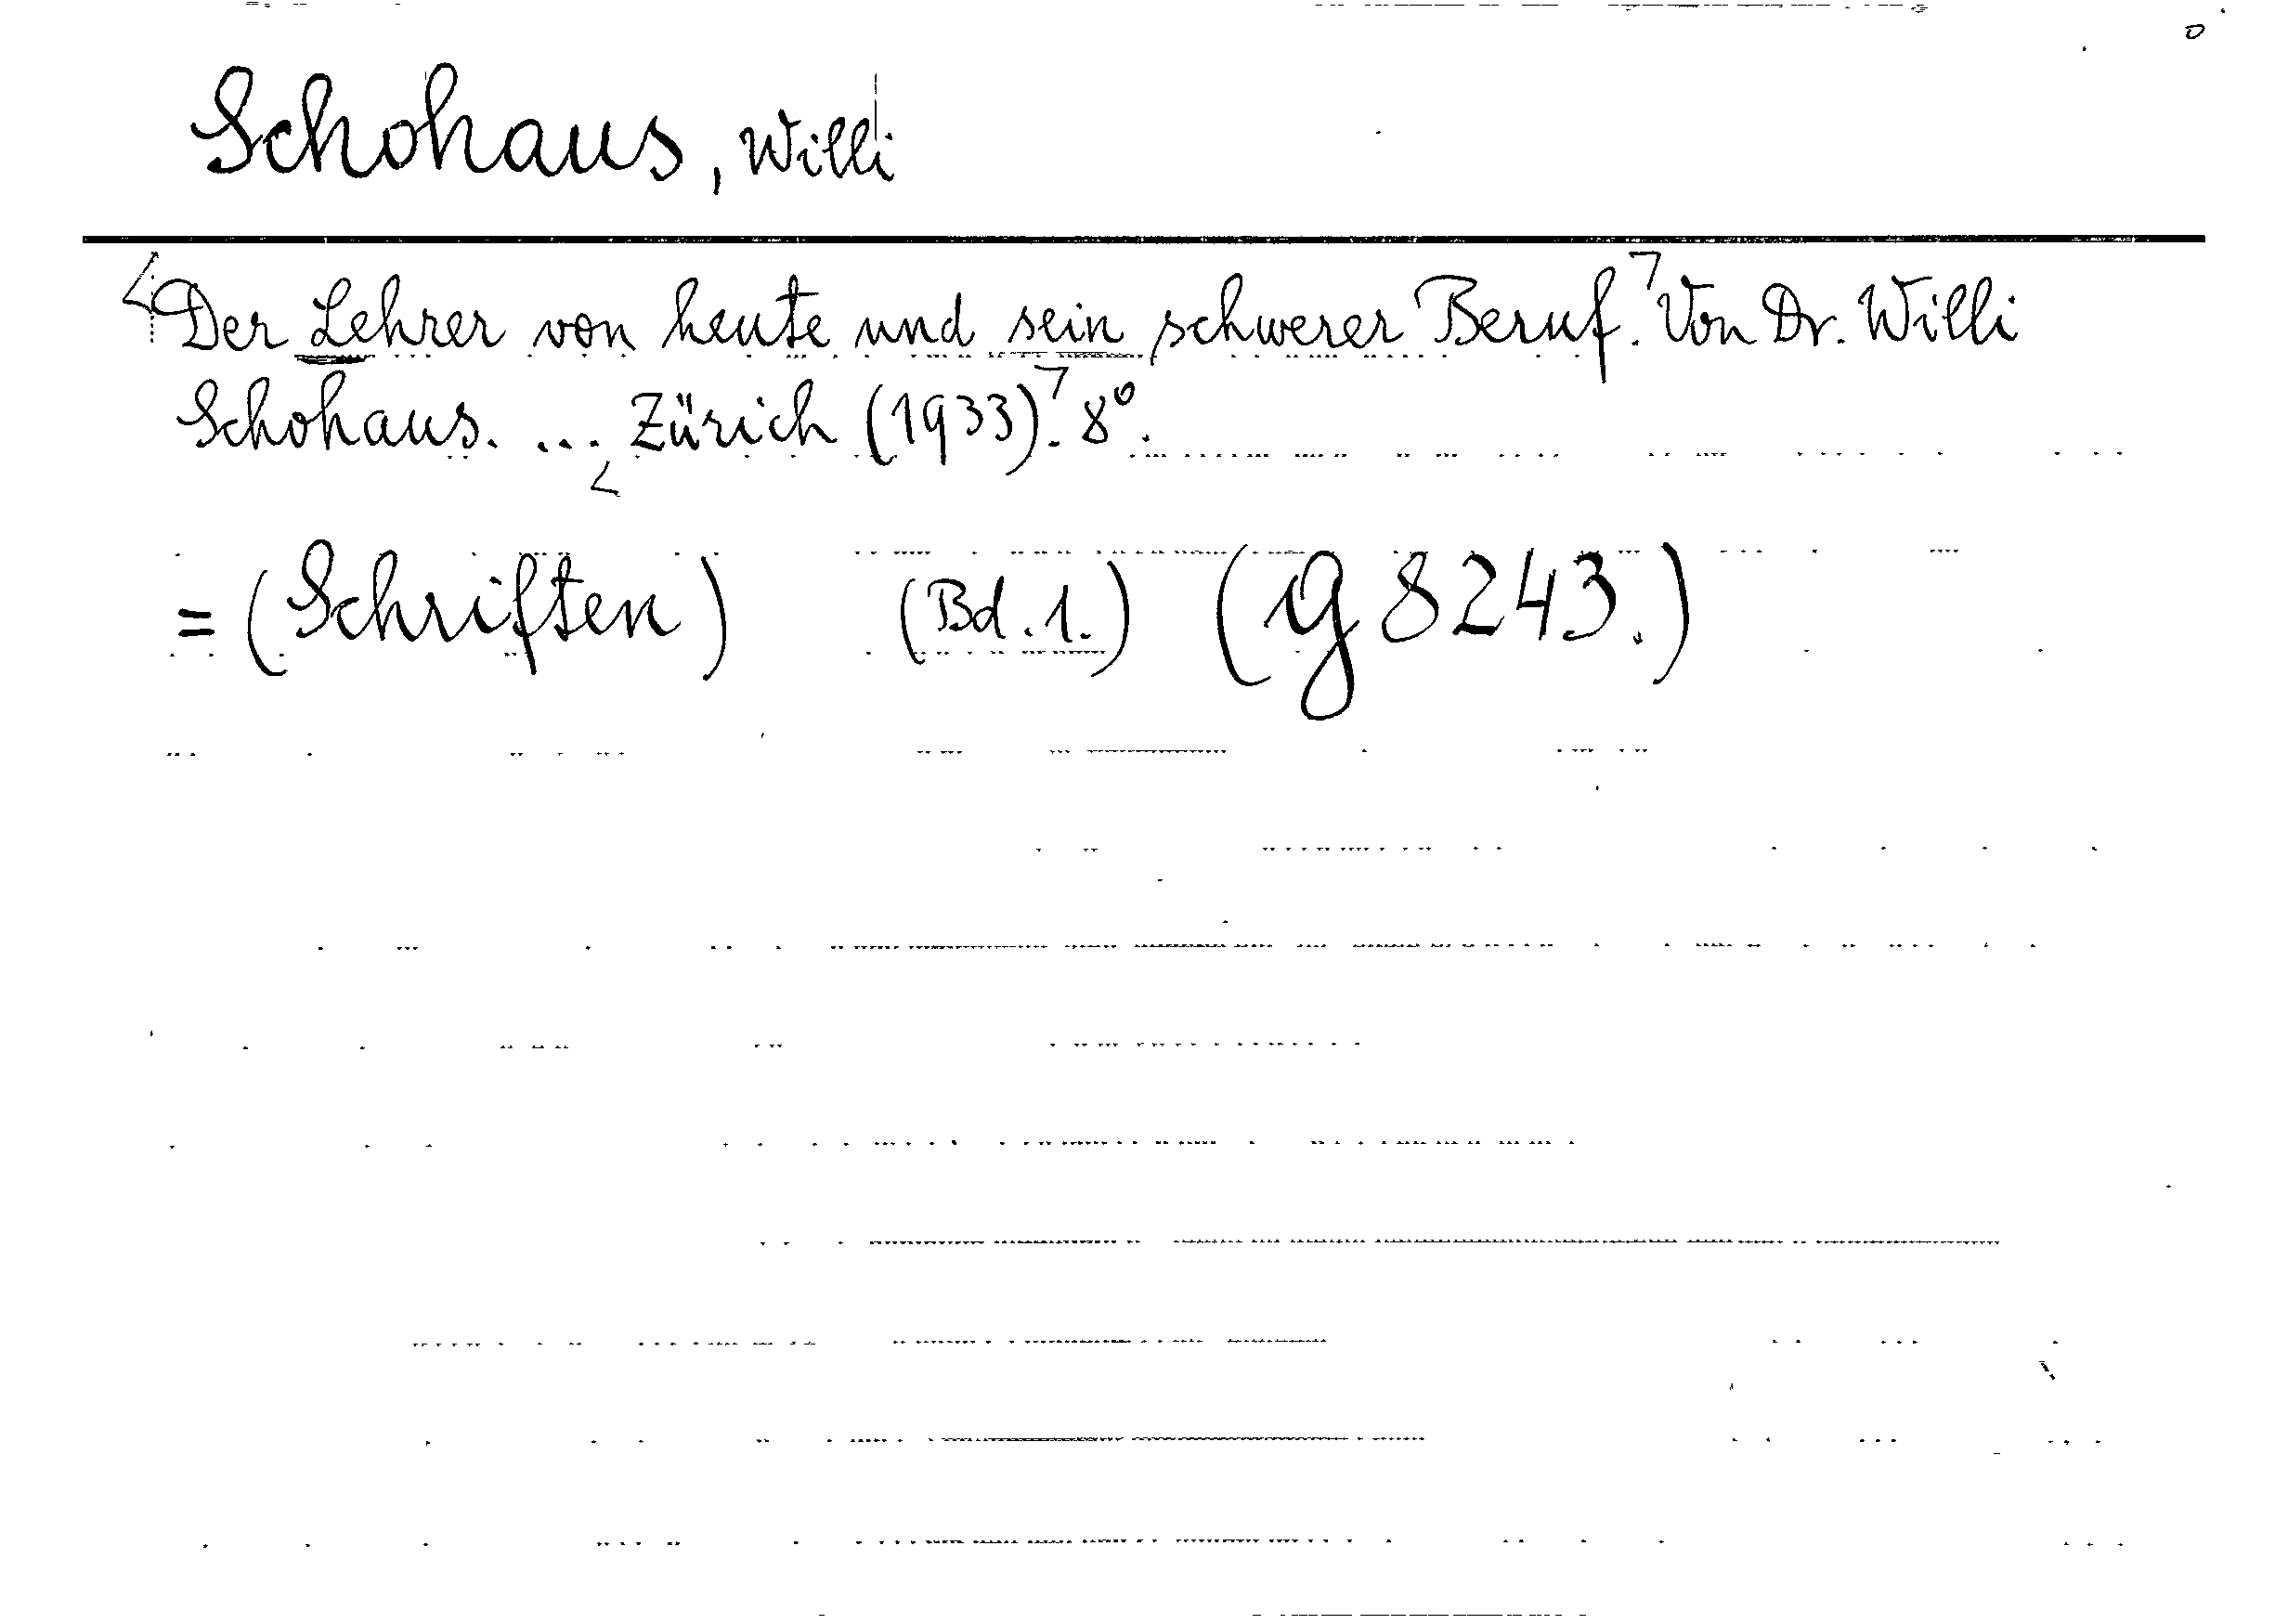 Schohaus, Willi
Der Lehrer von heute und sein schwerer Beruf. Von Dr. Willi
Schohaus. ... Zürich (1933). 8°.
= (Schriften) (Bd. 1.) (g 8243.)